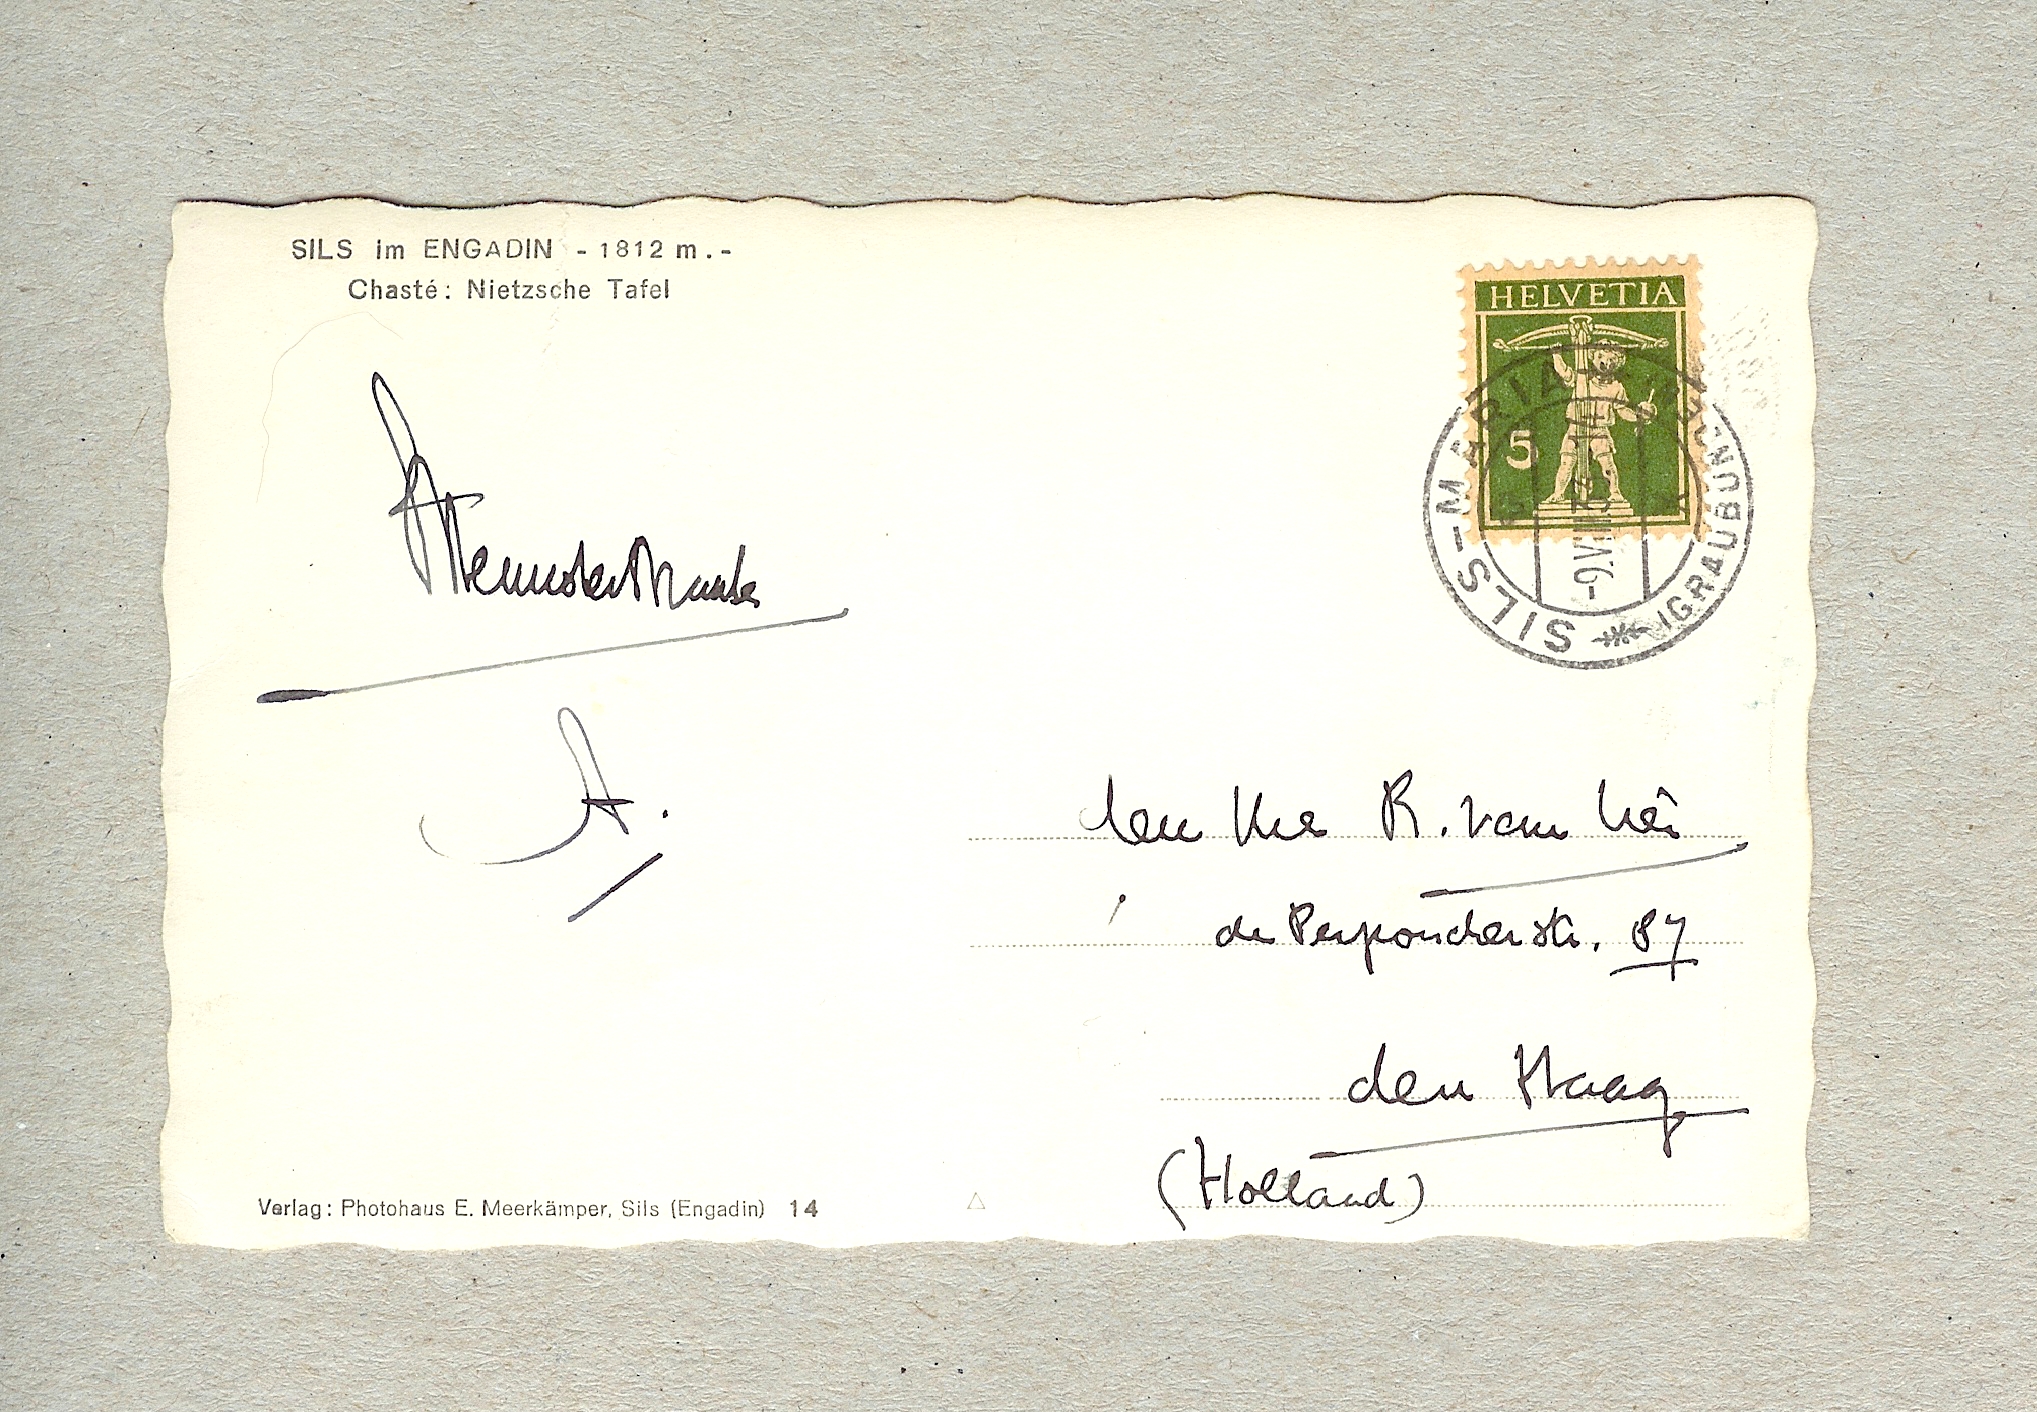 SILS im ENGADIN - 1812 m.-
Chasté: Nietzsche Tafel
HELVETIA
5
SILS-MARIA
(GRAUBÜND
-9.VIII.
A.
R. van
de Perponcherstr. 87
den Haag
(Holland)
Verlag: Photohaus E. Meerkämper, Sils (Engadin) 14